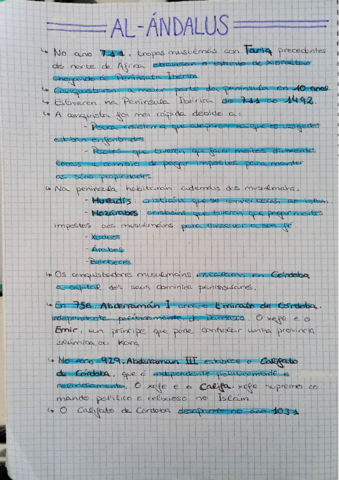 AL-ÁNDALUS
No ano 711, tropas musulmás con Tariq, procedentes
do norte de África
chegando á Península Ibérica
Conquistaron a maior parte da península en 10 anos
Estiveron na Península Ibérica do 711 ao 1492.
A conquista foi moi rápida debido a:
- Pouca resistencia que
estaban enfrontados
- Pactos que tiveron que facer
de pagar impostos para manter
as súas propiedades
Na península habitaron ademais dos musulmáns:
- Muladís: cristiáns que se
- Mozárabes: cristiáns que tiveron que pagar
impostos aos musulmáns para
- Xudeus
- Árabes
- Bereberes
Os conquistadores musulmáns en Córdoba
a capital dos seus dominios peninsulares.
En 756, Abderramán I Emirato de Córdoba,
independente politicamente de Damasco. O xefe é o
Emir, un príncipe que pode controlar unha provincia
Abderramán III establece o Califato
de Córdoba, que é independente politicamente e
relixiosamente. O xefe é o Califa, xefe supremo co
mando político e relixioso no Islam
O Califato de Córdoba desaparece no ano 1031